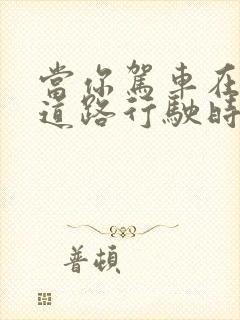 當你駕車在
道路行駛時
普頓